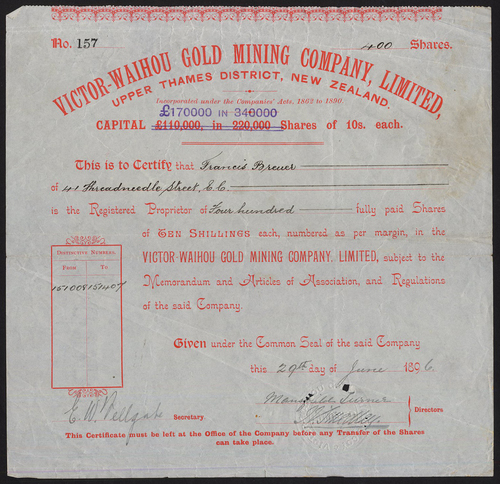 No. 157 400 Shares.
VICTOR-WAIHOU GOLD MINING COMPANY, LIMITED,
UPPER THAMES DISTRICT, NEW ZEALAND.
Incorporated under the Companies' Acts, 1862 to 1890.
£170000 IN 340000
CAPITAL £110,000, in 220,000 Shares of 10s. each.
This is to Certify that Francis Brewer
of 41 Threadneedle Street, E.C.
is the Registered Proprietor of Four hundred fully paid Shares
of TEN SHILLINGS each, numbered as per margin, in the
VICTOR-WAIHOU GOLD MINING COMPANY, LIMITED, subject to the
Memorandum and Articles of Association, and Regulations
of the said Company.
DISTINCTIVE NUMBERS.
From To
151008 151407
Given under the Common Seal of the said Company
this 29th day of June 1896
Secretary.
Turner
Directors
This Certificate must be left at the Office of the Company before any Transfer of the Shares
can take place.